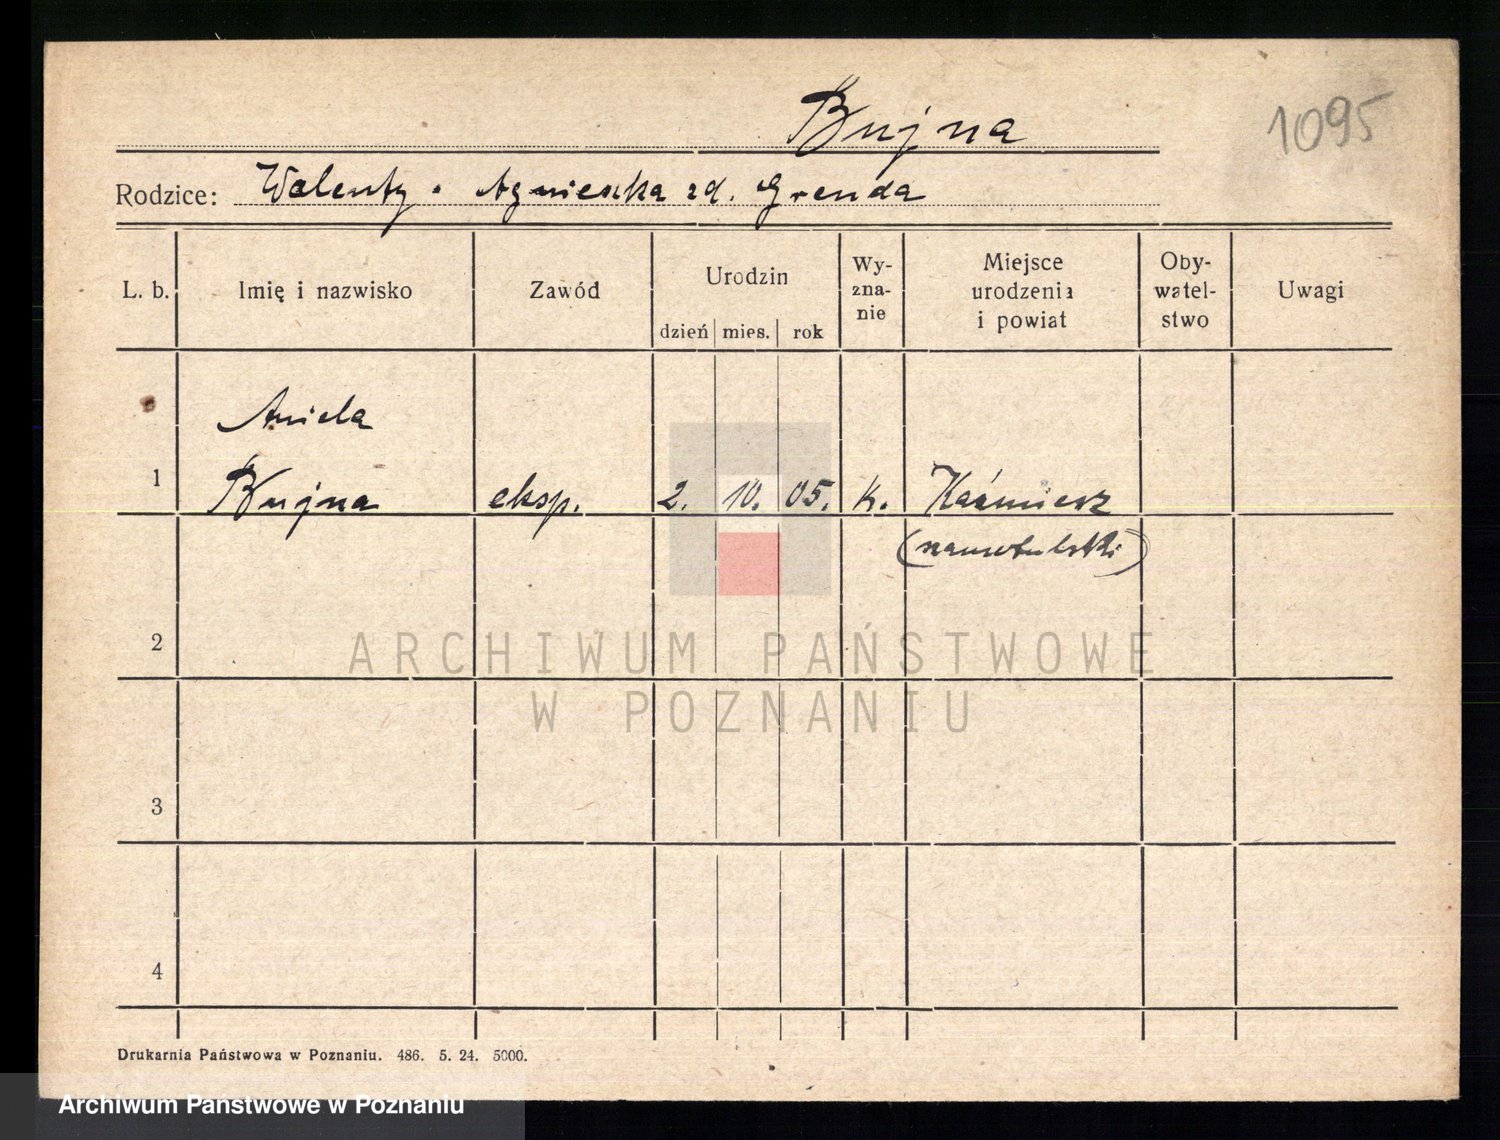 Bujna
1095
Rodzice: Walenty. Agnieszka zd. Grenda
L. b. Imię i nazwisko Zawód Urodzin dzień mies. rok Wy-zna-nie Miejsce urodzenia i powiat Oby-watel-stwo Uwagi
Aniela
1 Bujna eksp. 2. 10. 05. k. Kaźmierz
(szamotulski)
2
ARCHIWUM PAŃSTWOWE
W POZNANIU
3
4
Drukarnia Państwowa w Poznaniu. 486. 5. 24. 5000.
Archiwum Państwowe w Poznaniu